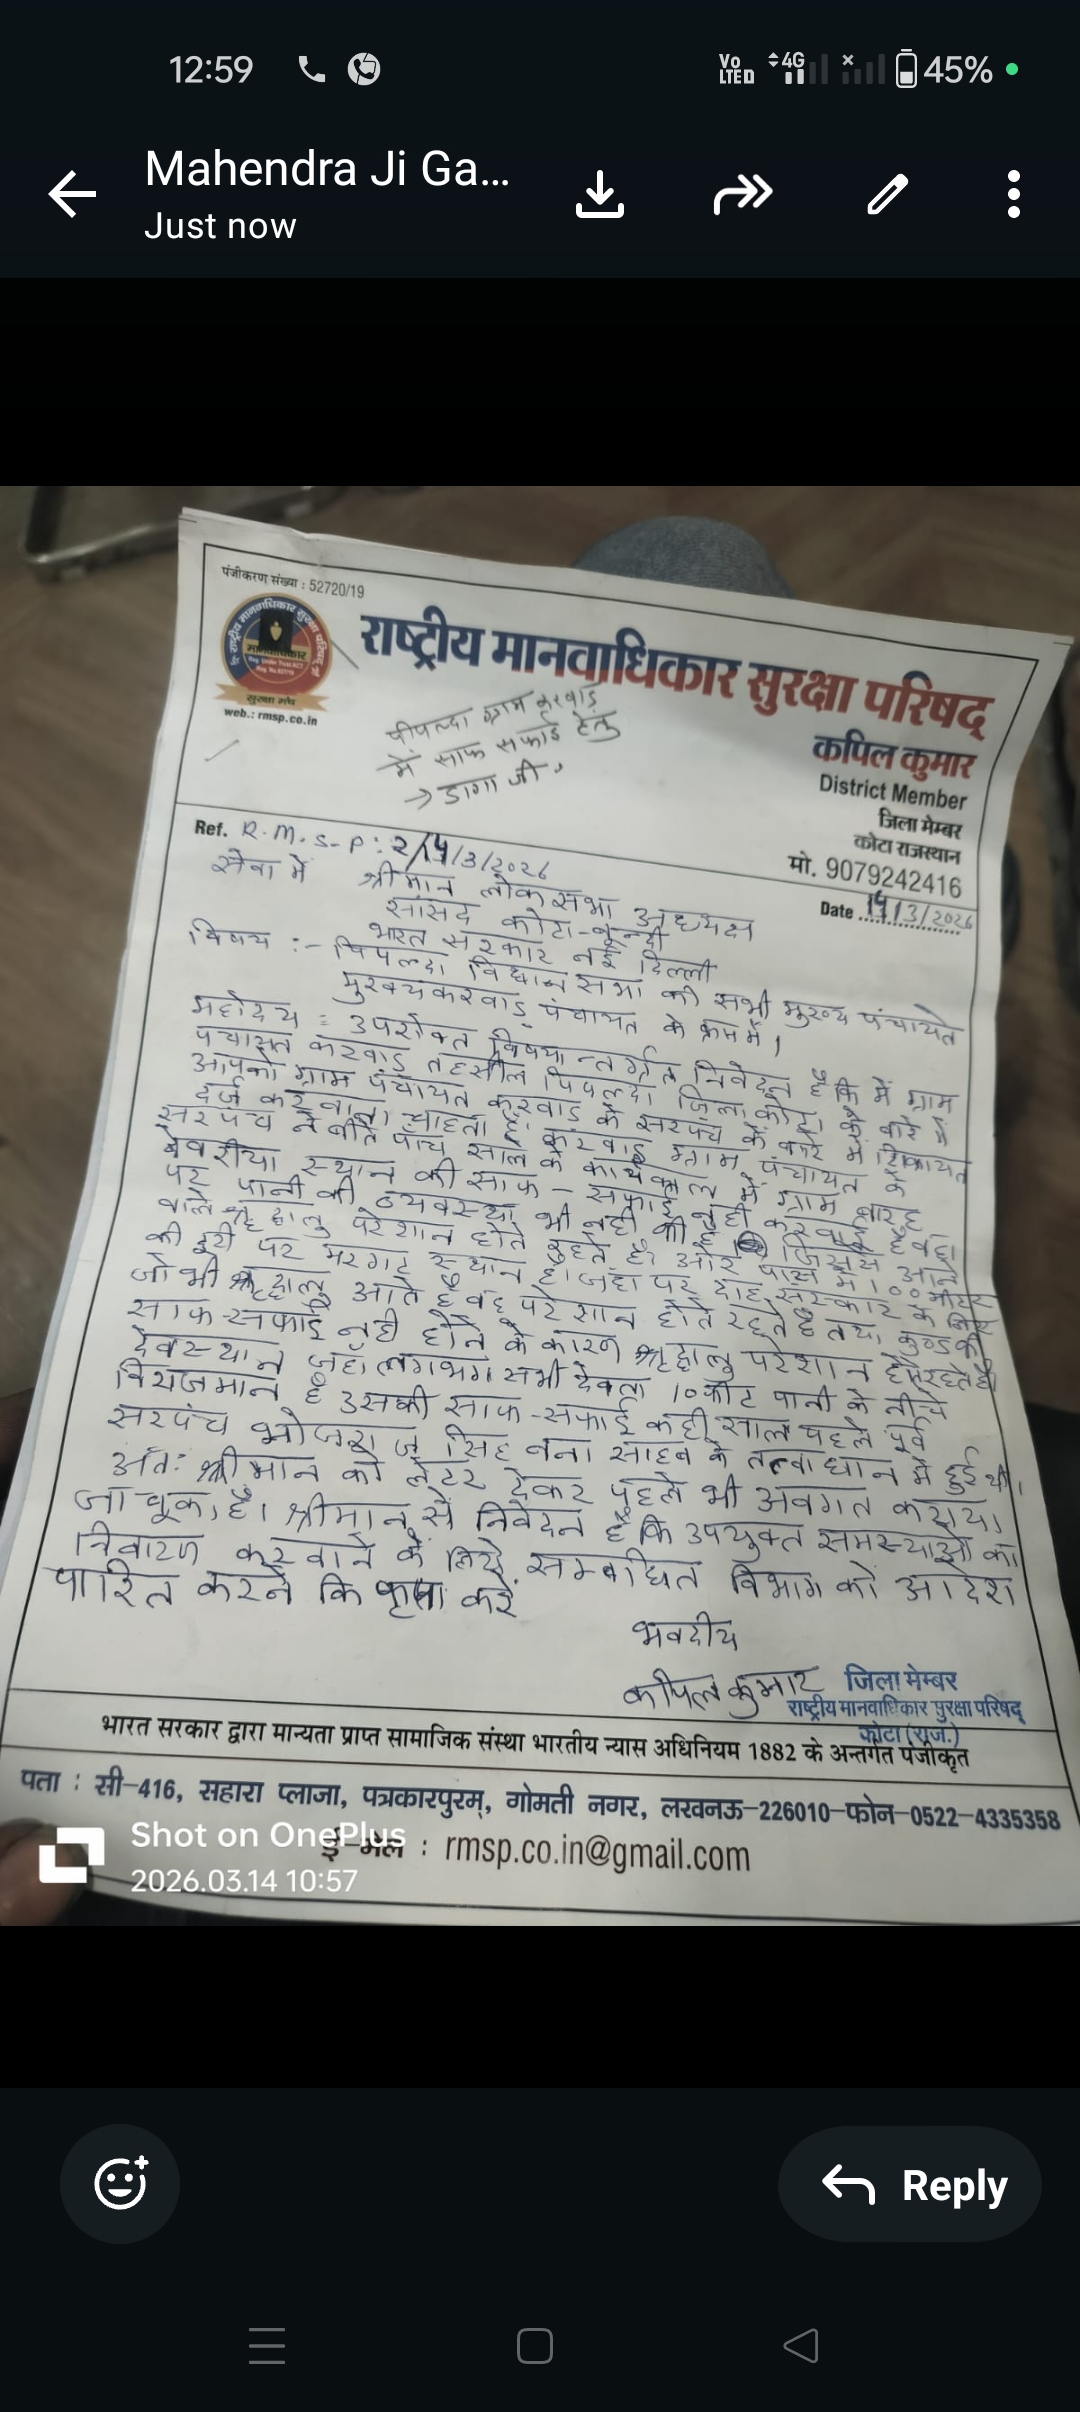 12:59
Vo LTED 4G 45%
Mahendra Ji Ga...
Just now
पंजीकरण संख्या : 52720/19
राष्ट्रीय मानवाधिकार सुरक्षा परिषद्
web.: rmsp.co.in
पीपल्दा ग्राम करवाड़
में साफ सफाई हेतु
→ डागा जी
कपिल कुमार
District Member
जिला मेम्बर
कोटा राजस्थान
मो. 9079242416
Ref. R.M.S-P: 2/14/3/2026
Date 14/3/2026
सेवा में
श्रीमान लोकसभा अध्यक्ष
सांसद कोटा-बून्दी
भारत सरकार नई दिल्ली
विषय :- पिपल्दा विधान सभा की सभी मुख्य पंचायते
मुख्य करवाड़ पंचायत के क्रम में।
महोदय = उपरोक्त विषयान्तर्गत निवेदन है कि में ग्राम
पंचायत करवाड़ तहसील पिपल्दा जिला कोटा के बारे में
आपको ग्राम पंचायत करवाड़ के सरपंच के बारे में शिकायत
दर्ज करवाना चाहता हूं। करवाड़ ग्राम पंचायत के
सरपंच ने बीते पाँच साल के कार्यकाल में ग्राम
स्थान की साफ-सफाई नहीं करवाई है वहां
पर पानी की व्यवस्था भी नहीं की है जिससे आने
वाले श्रृद्धालु परेशान होते रहते है। और पास में 100 मीटर
की दूरी पर मरगट स्थान है। जहां पर दाह संस्कार के लिए
जो भी श्रृद्धालु आते है वह परेशान होते रहते है तथा कुण्ड की
साफ-सफाई नही होने के कारण श्रृद्धालु परेशान होते रहते है।
देवस्थान जहाँ लगभग सभी देवता 10 फीट पानी के नीचे
विराजमान है उसकी साफ-सफाई कही साल पहले पूर्व
सरपंच भोजराज सिंह बना साहब के तत्वाधान में हुई थी।
अतः श्रीमान को लेटर देकर पहले भी अवगत कराया
जा चूका है। श्रीमान से निवेदन है कि उपयुक्त समस्याओं का
निवारण करवाने के लिये सम्बधित विभाग को आदेश
पारित करने कि कृपा करे
भवदीय
कपिल कुमार
जिला मेम्बर
राष्ट्रीय मानवाधिकार सुरक्षा परिषद्
कोटा (राज.)
भारत सरकार द्वारा मान्यता प्राप्त सामाजिक संस्था भारतीय न्यास अधिनियम 1882 के अन्तर्गत पंजीकृत
पता : सी-416, सहारा प्लाजा, पत्रकारपुरम्, गोमती नगर, लखनऊ-226010-फोन-0522-4335358
ई-मेल : rmsp.co.in@gmail.com
Shot on OnePlus
2026.03.14 10:57
Reply